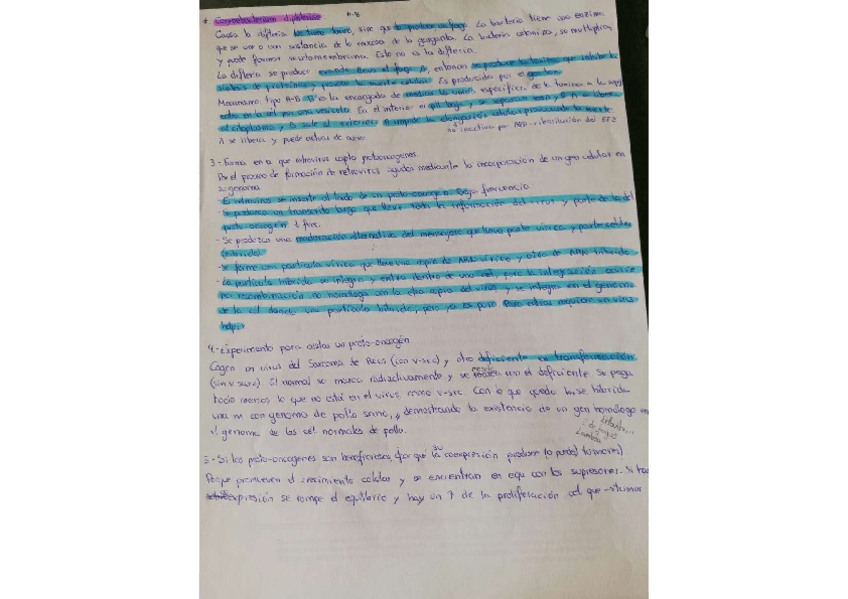 * Corynebacterium diphteriae A-B
Causa la difteria. No tiene toxina, sino que la produce un fago. La bacteria tiene una enzima
que se une a una sustancia de la mucosa de la garganta. La bacteria coloniza, se multiplica
y puede formar pseudomembrana. Esto no es la difteria.
La difteria se produce cuando lleva el fago β, entonces se produce la toxina que inhibe la
síntesis de proteínas y provoca la muerte celular. Es producida por el
Mecanismo: tipo A-B. B es la encargada de mediar la unión específica de la toxina a la
entra en la cel por una vesícula. En el interior el pH baja y se separan A y B. A se libera
al citoplasma y B sale al exterior. A impide la elongación celular provocando la muerte
A se libera y puede actuar de nuevo. no inactiva por ADP-ribosilación del EF2
3- Forma en q que retrovirus capta protooncogenes.
Por el proceso de formación de retrovirus agudos mediante la incorporación de un gen celular en
su genoma
- El retrovirus se inserta al lado de un proto-oncogen. Baja frecuencia
- Se produce un transcrito largo que lleve toda la información del virus y parte de la del
proto-oncogen
- Se produzca una maduración alternativa del mensajero que lleva parte vírica y parte celular
(híbrido)
- Se forme una partícula vírica que lleve una copia de ARN vírico y otra de ARN híbrido
- La partícula híbrida se integra y entra dentro de una cel, pero la integración ocurre
por recombinación no homóloga con la otra copia del virus y se integra en el genoma
de la cel dando una partícula híbrida, pero ya es puro. Para otras requieren un virus
helper
4.- Experimento para aislar un proto-oncogén
Cogen un virus del Sarcoma de Rous (con v-src) y otro deficiente en transformación
(sin v-src) El normal se marca radiactivamente y se mezcla con el deficiente. Se pega
todo menos lo que no está en el virus, como v-src. Con lo que queda hace híbrida
una m con genoma de pollo sano, y demostrando la existencia de un gen homólogo en
el genoma de las cél normales de pollo.
5- Si los proto-oncogenes son beneficiosos, ¿por qué su coexpresión produce (o puede) tumores?
Porque promueven el crecimiento celular y se encuentran en equ con los supresores. Si hay
expresión se rompe el equilibrio y hay un ↑ de la proliferación cel que